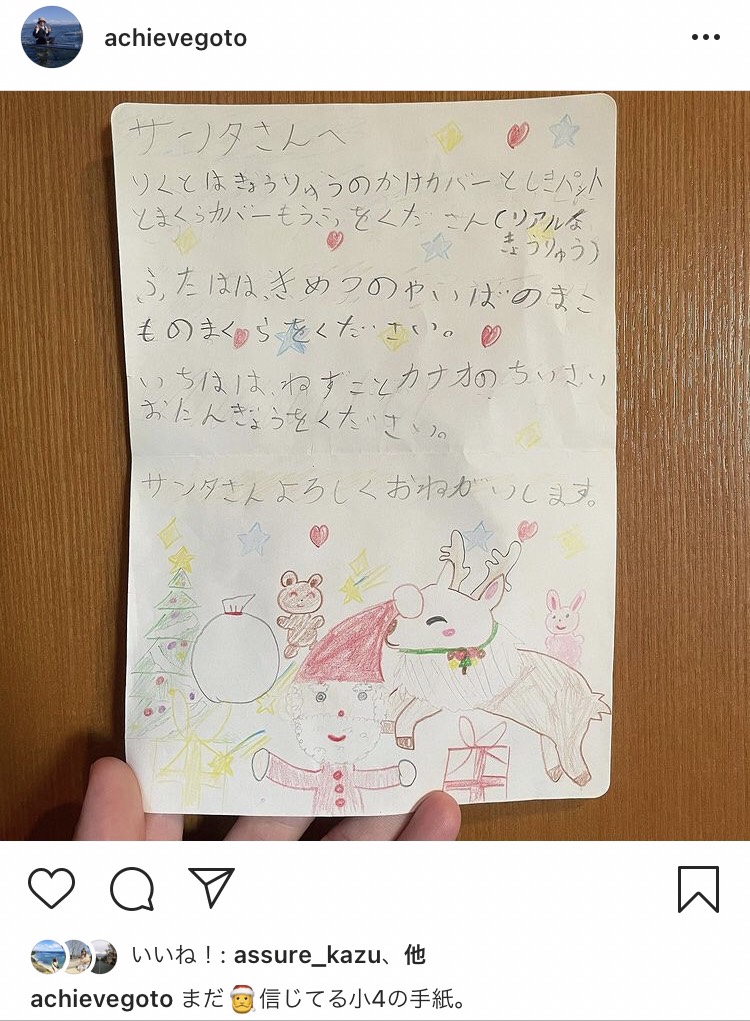 achievegoto
サンタさんへ
りくとはきょうりゅうのかけカバーとしきパット
とまくらカバーもうふをください(リアルな
きょうりゅう)
ふたばは、きめつのやいばのまこ
ものまくらをください。
いちはは、ねずことカナオのちいさい
おにんぎょうをください。
サンタさんよろしくおねがいします。
いいね!: assure_kazu、他
achievegoto まだ🎅信じてる小4の手紙。